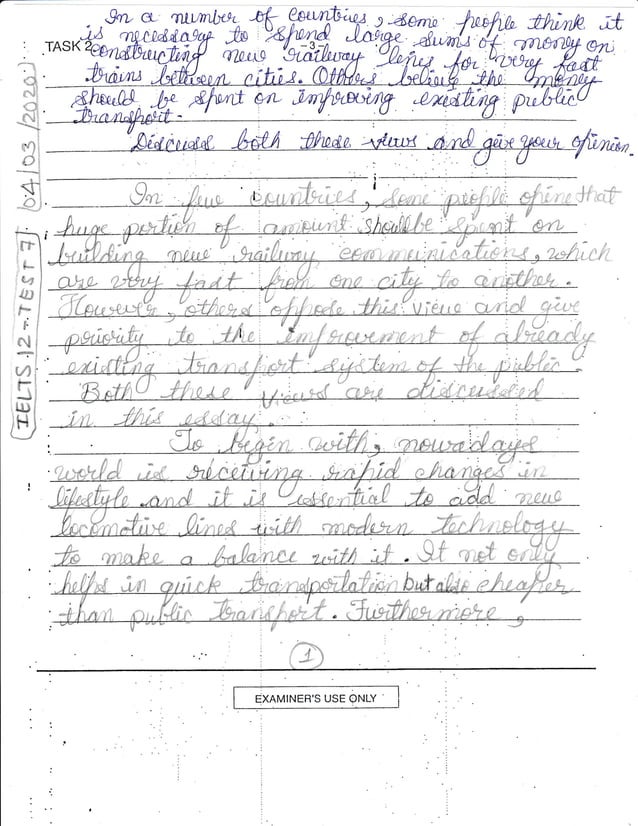 In a number of countries, some people think it
is necessary to spend large sums of money on
TASK 2
-3-
constructing new railway lines for very fast
trains between cities. Others believe the money
should be spent on improving existing public
transport.
Discuss both these views and give your opinion.
IELTS 12-TEST 7
04/03/2020
In few countries, some people opine that
huge portion of amount should be spent on
building new railway communications, which
are very fast from one city to another.
However, others oppose this view and give
priority to the improvement of already
existing transport system of the public.
Both these views are discussed
in this essay.
To begin with, nowadays
world is receiving rapid changes in
lifestyle and it is essential to add new
locomotive lines with modern technology
to make a balance with it. It not only
helps in quick transportation but also cheaper
than public transport. Furthermore,
1
EXAMINER'S USE ONLY